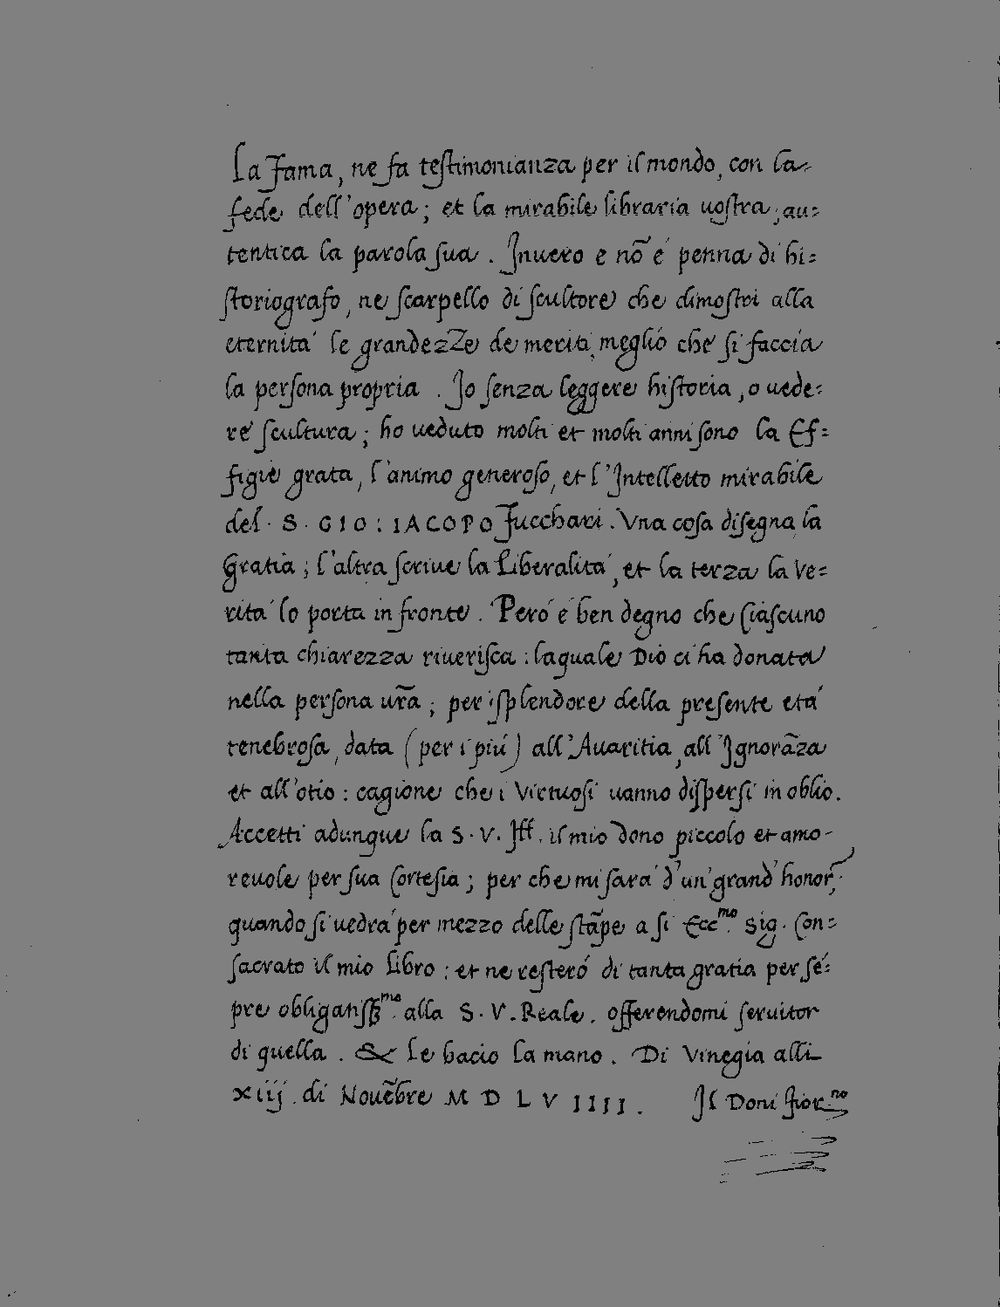 La Fama, ne fa testimonianza per il mondo, con la
fede dell'opera; et la mirabile libraria uostra, au=
tentica la parola sua. Inuero e nõ é penna di hi=
storiografo, ne scarpello di scultore che dimostri alla
eternita' le grandezze de meriti, meglio che si faccia
la persona propria. Io senza leggere historia, o uede=
re' scultura; ho ueduto molti et molti anni sono la Ef=
figie grata, l'animo generoso, et l'Intelletto mirabile
del. S. GIO: IACOPO Fucchari. Una cosa disegna la
Gratia; l'altra scriue la Liberalita', et la terza la Ve=
rita' lo porta in fronte. Peró é ben degno che ciascuno
tanta chiarezza riuerisca: laquale Dio ci ha donata
nella persona ur̃a; per isplendore della presente etá
tenebrosa, data (per i piú) all'Auaritia, all'Ignorãza
et all'otio: cagione che i Virtuosi uanno dispersi in oblio.
Accetti adunque la S. V. Ill. il mio dono piccolo et amo-
reuole per sua Cortesia; per che mi sara' d'un' grand' honor,
quando si uedra' per mezzo delle stãpe a si Ecc.mo Sig. Con=
sacrato il mio Libro: et ne resteró di tanta gratia per sé=
pre obligatiss.mo alla S. V. Reale. offerendomi seruitor
di quella. & le bacio la mano. Di Vinegia alli
xiij. di Nouẽbre M D L V IIII. Il Doni fior.no